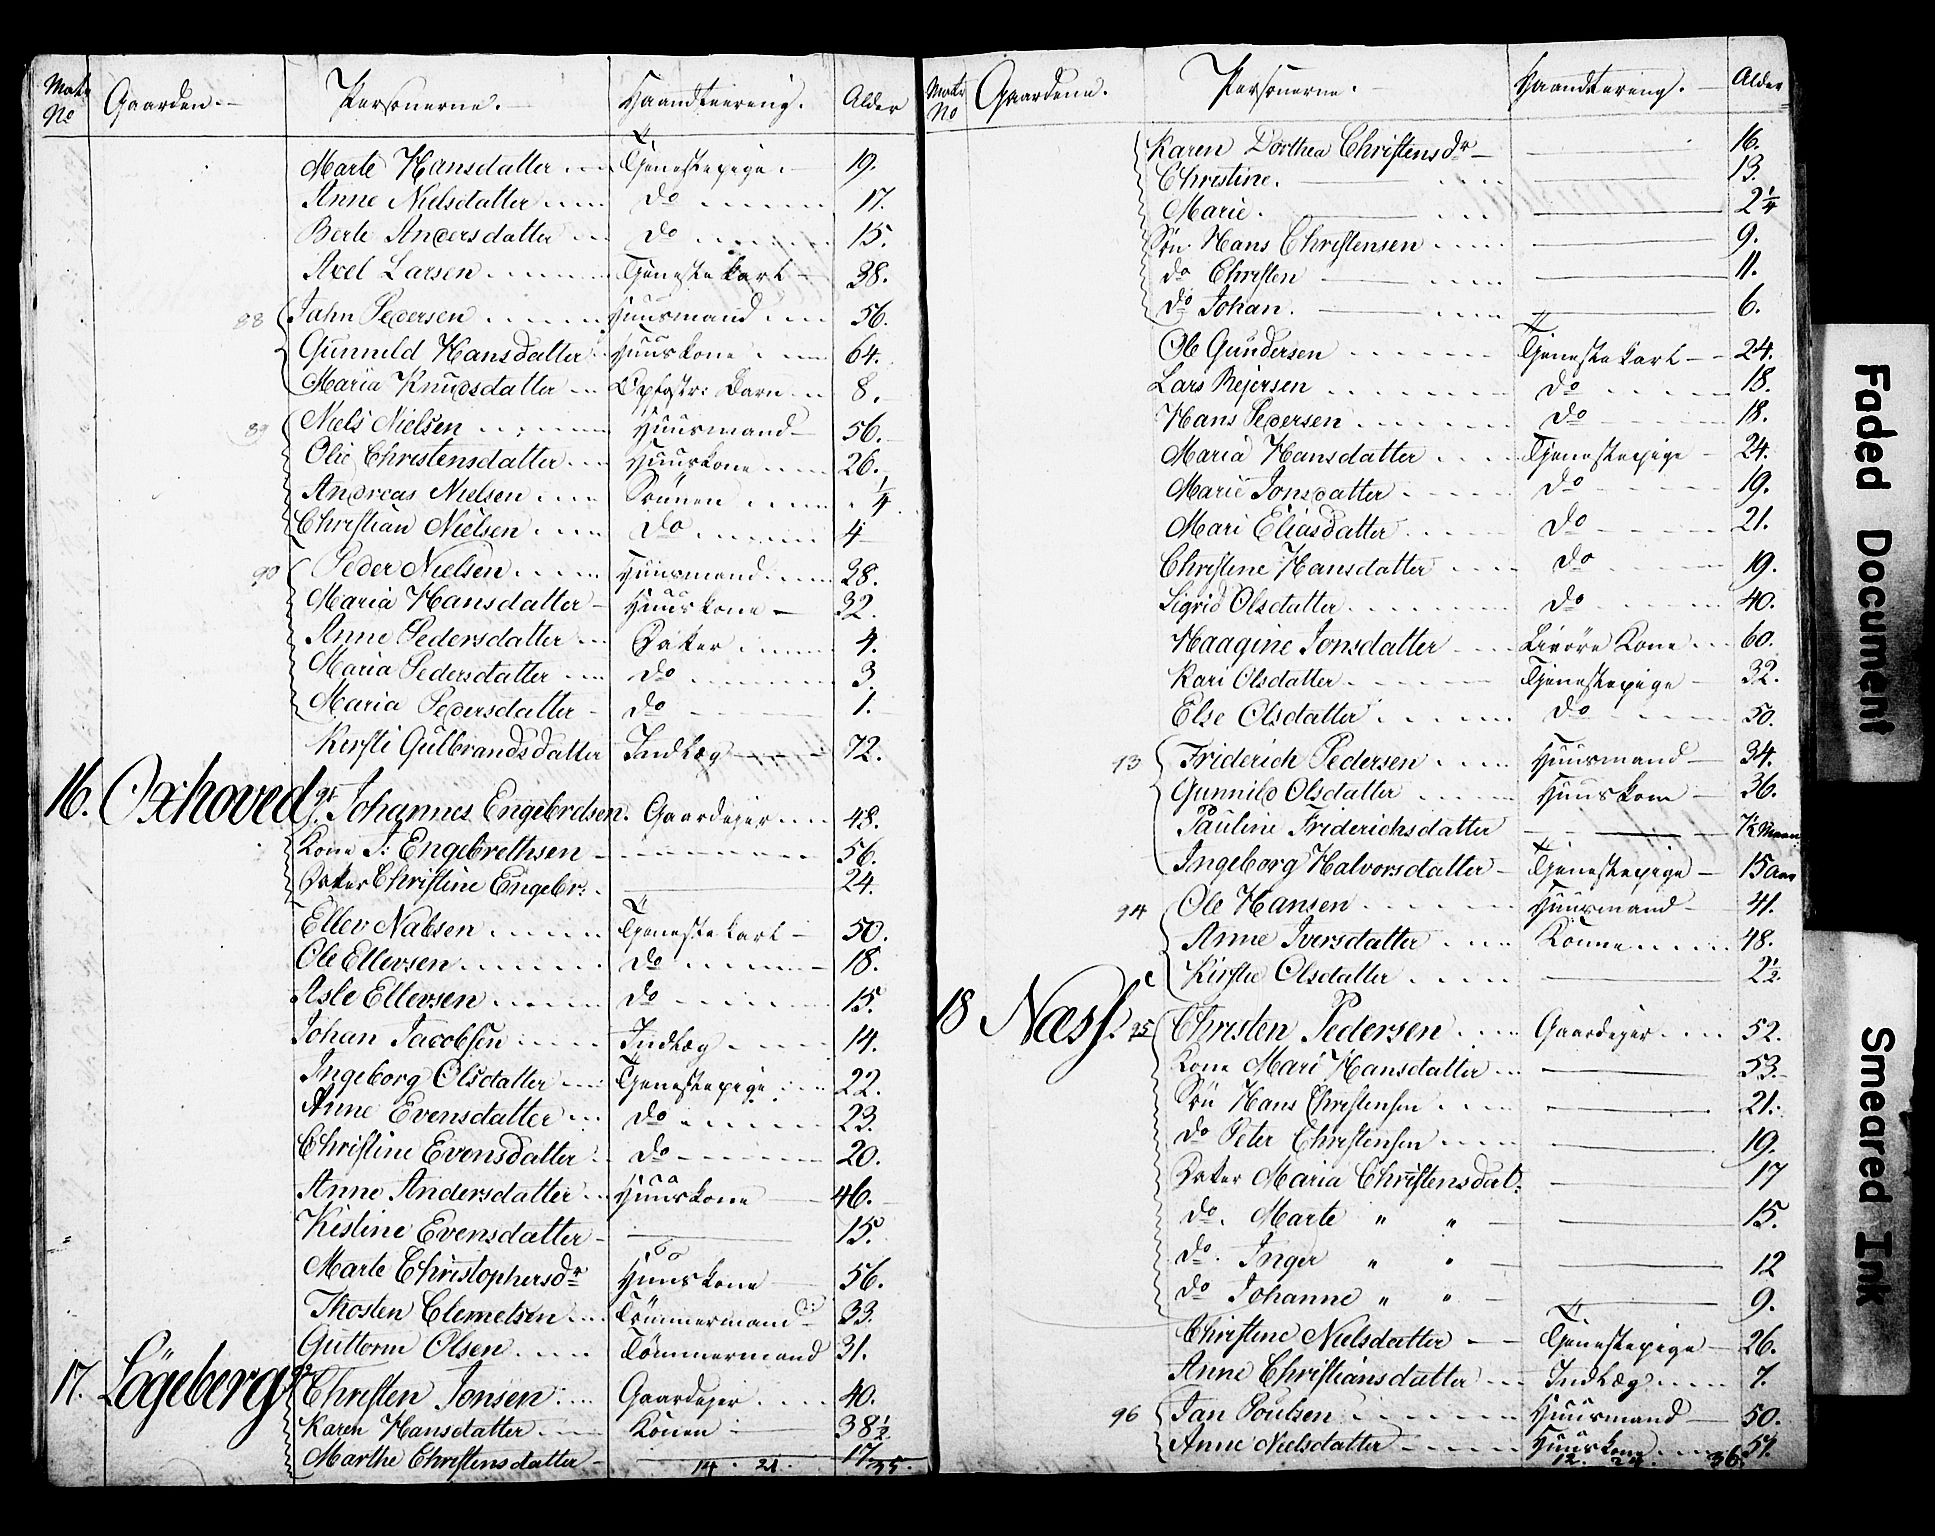 Matr No Gaarden. Personerne. Haandteering. Alder
Marte Hansdatter Tjenestepige 19.
Anne Nielsdatter do 17.
Berte Andersdatter do 15.
Axel Larsen Tjenestekarl 38.
88 Jahn Pedersen Huusmand 56.
Gunneld Hansdatter Huuskone 64.
Maria Knudsdatter Opfostr: Barn 8.
89 Niels Nielsen Huusmand 56.
Olie Christensdatter Huuskone 26.
Andreas Nielsen Sönnen 1/4
Christian Nielsen do 4
90 Peder Nielsen Huusmand 38.
Maria Hansdatter Huuskone 32.
Anne Pedersdatter Datter 4.
Maria Pedersdatter do 3.
Maria Pedersdatter do 1.
Kirsti Gulbrandsdatter Indlæg 72.
16. Oxhoved 91 Johannes Engebretsen. Gaardejer 48.
Kone I: Engebrethsen 56.
Datter Christine Engebr: 24.
Ellev Nalsen Tjenestekarl 50.
Ole Ellevsen do 18.
Asle Ellevsen do 15.
Johan Jacobsen Indlæg 14.
Ingeborg Olsdatter Tjenestepige 22.
Anne Evensdatter do 23.
Christine Evensdatter do 20.
Anne Andersdatter Huuskone 46.
Kistine Evensdatter 15.
Marte Christophersdr Huuskone 56.
Thosten Clemetsen Tömmermand 33.
Guttorm Olsen Tömmermand 31.
17. Lögeberg 92 Christen Jonsen Gaardejer 40.
Karen Hansdatter Konen 38 1/2
Marthe Christensdatter 17.
14. 21. 35.
Matr No Gaardene. Personerne. Haandtering. Alder
Karen Dorthea Christensdr 16.
Christine. 13.
Marie. 2 1/4
Sön Hans Christensen 9.
do Christen 11.
do Johan. 6.
Ole Gundersen Tjenestekarl 24.
Lars Rejersen do 18.
Hans Pedersen do 18.
Maria Hansdatter Tjenestepige 24.
Marie Jonsdatter do 19.
Mari Eliasdatter do 21.
Christine Hansdatter do 19.
Sigrid Olsdatter do 40.
Haagine Jonsdatter Livöre Kone 60.
Kari Olsdatter Tjenestepige 32.
Else Olsdatter do 50.
93 Friderich Pedersen Huusmand 34.
Gunnild Olsdatter Huuskone 36.
Pauline Friderichsdatter 7 1/2 Maan
Ingeborg Halvorsdatter Tjenestepige 15 Aar
94 Ole Hansen Huusmand 41.
Anne Iversdatter Konne 48.
Kirstie Olsdatter 2 1/2
18 Næss. 95 Christen Pedersen Gaardejer 52.
Kone Mari Hansdatter 53.
Sön Hans Christensen 21.
do Peter Christensen 19.
Datter Maria Christensdat: 17
do. Marte " " 15.
do. Inger " " 12
do Johanne " " 9.
Christine Nielsdatter Tjenestepige 26.
Anne Christiansdatter Indlæg 7.
96 Jan Poulsen Huusmand 50.
Anne Nielsdatter Huuskone 57.
12. 24. 36.
Faded Document
Smeared Ink